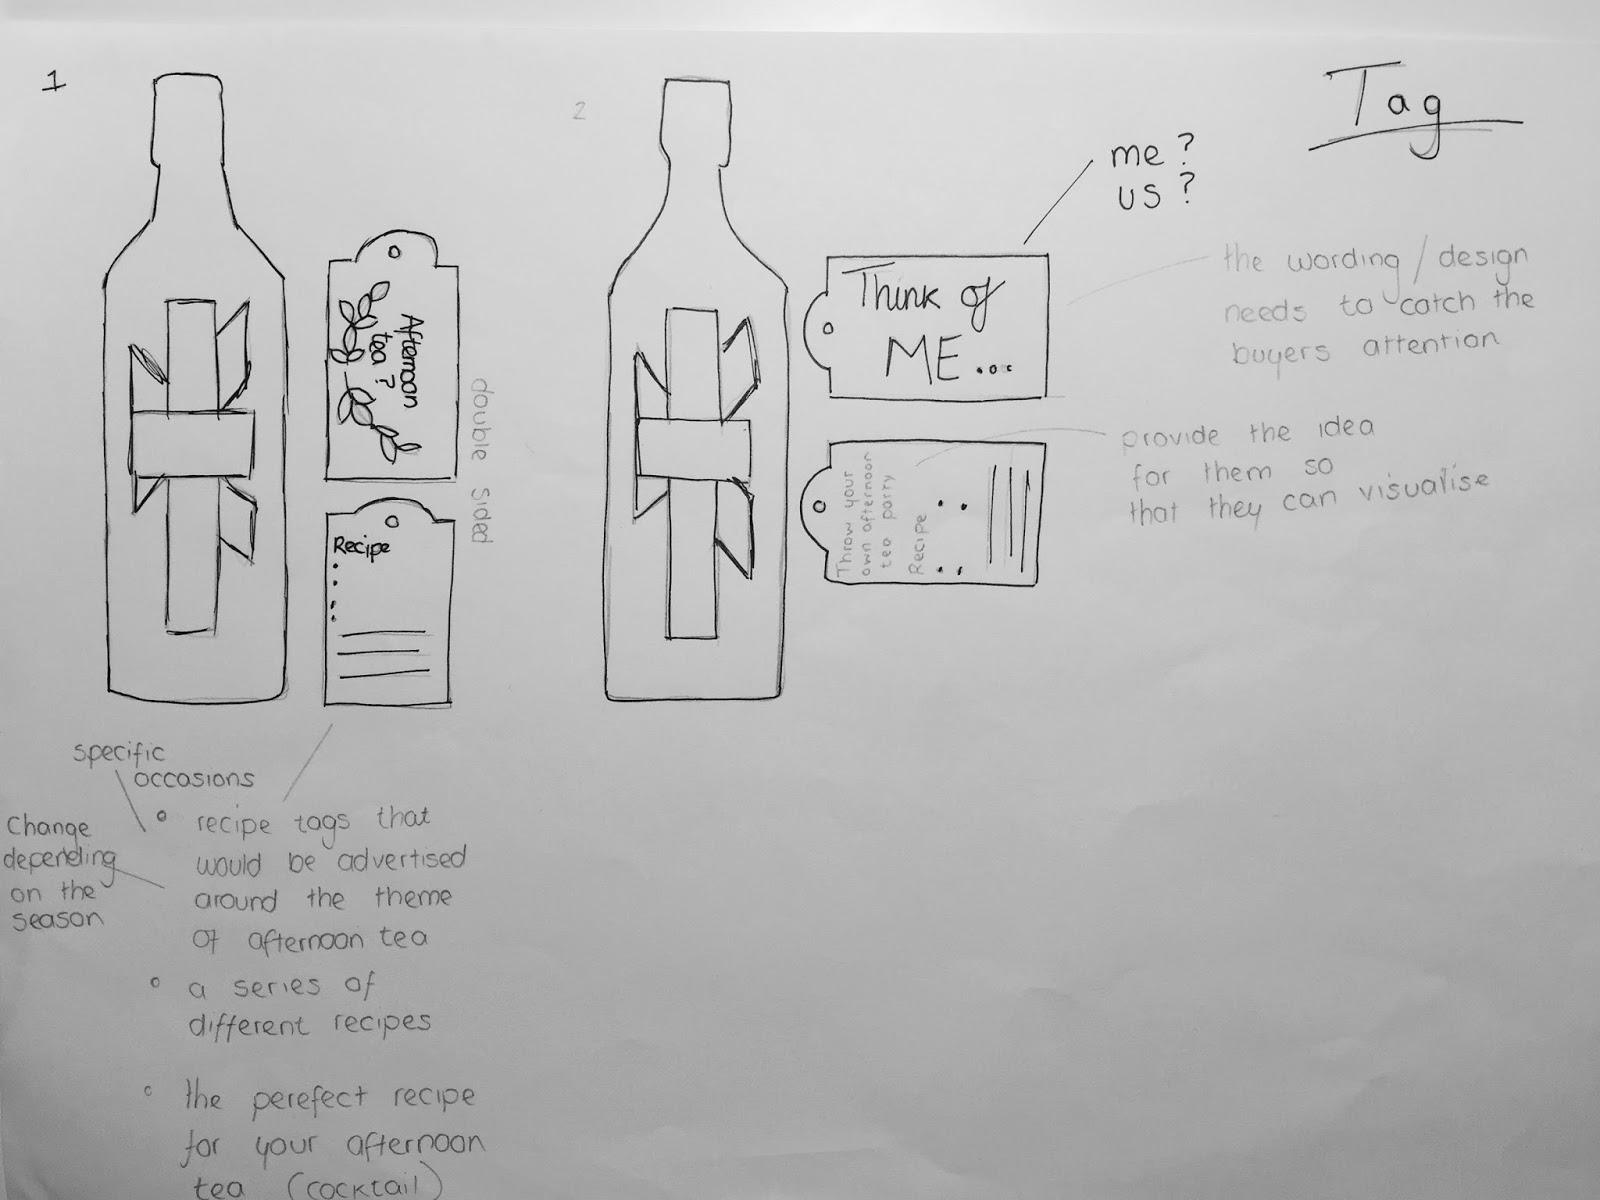 1
2
Tag
me?
us?
Afternoon
tea?
double sided
Recipe
Think of
ME...
the wording/design
needs to catch the
buyers attention
Throw your
own afternoon
tea party
Recipe
provide the idea
for them so
that they can visualise
specific
occasions
Change
depending
on the
season
recipe tags that
would be advertised
around the theme
of afternoon tea
a series of
different recipes
the perefect recipe
for your afternoon
tea (cocktail)